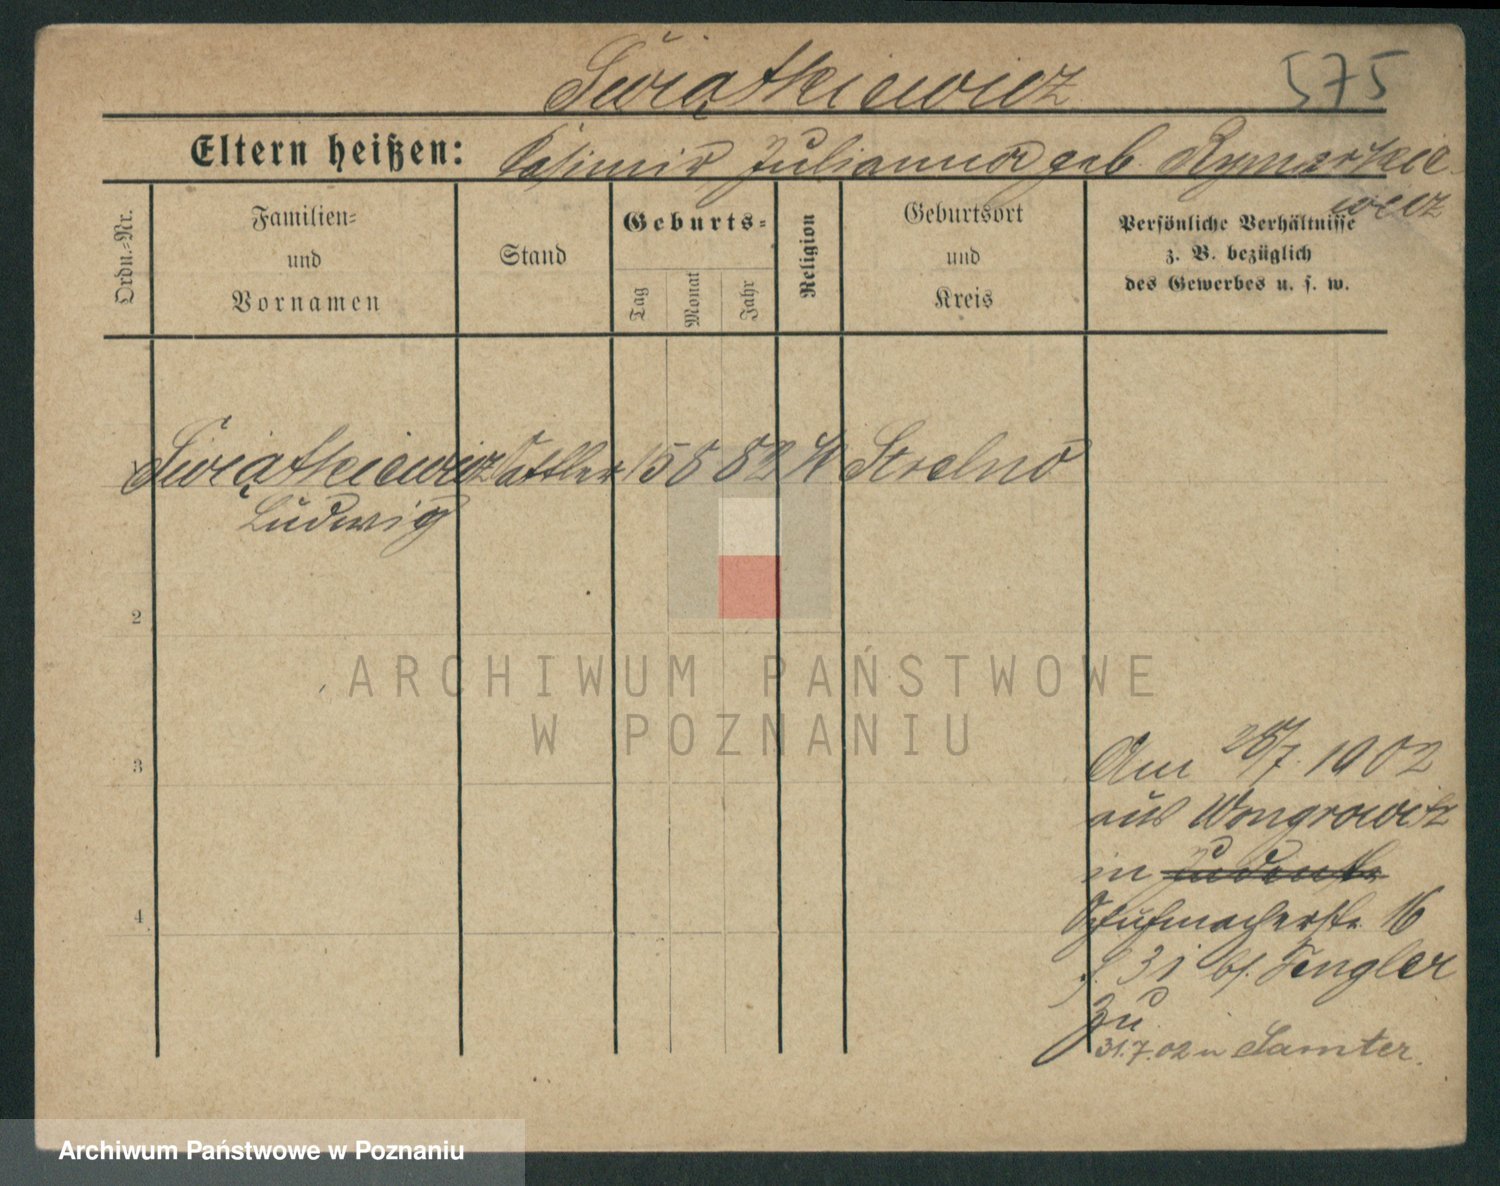 Świątkiewicz 575
Eltern heißen: Kasimir Julianna geb. Rymarkie-
wicz
Ordn.-Nr.
Familien-
und
Vornamen
Stand
Geburts-
Tag
Monat
Jahr
Religion
Geburtsort
und
Kreis
Persönliche Verhältnisse
z. B. bezüglich
des Gewerbes u. s. w.
Świątkiewicz Sattler 15 8 82 k Strelno
Ludwig
2
3
4
Am 28/7. 1902
aus Wongrowitz
in
Schuhmacherstr. 16
31 bei Fengler
zu
31.7.02 n Samter.
ARCHIWUM PAŃSTWOWE
W POZNANIU
Archiwum Państwowe w Poznaniu